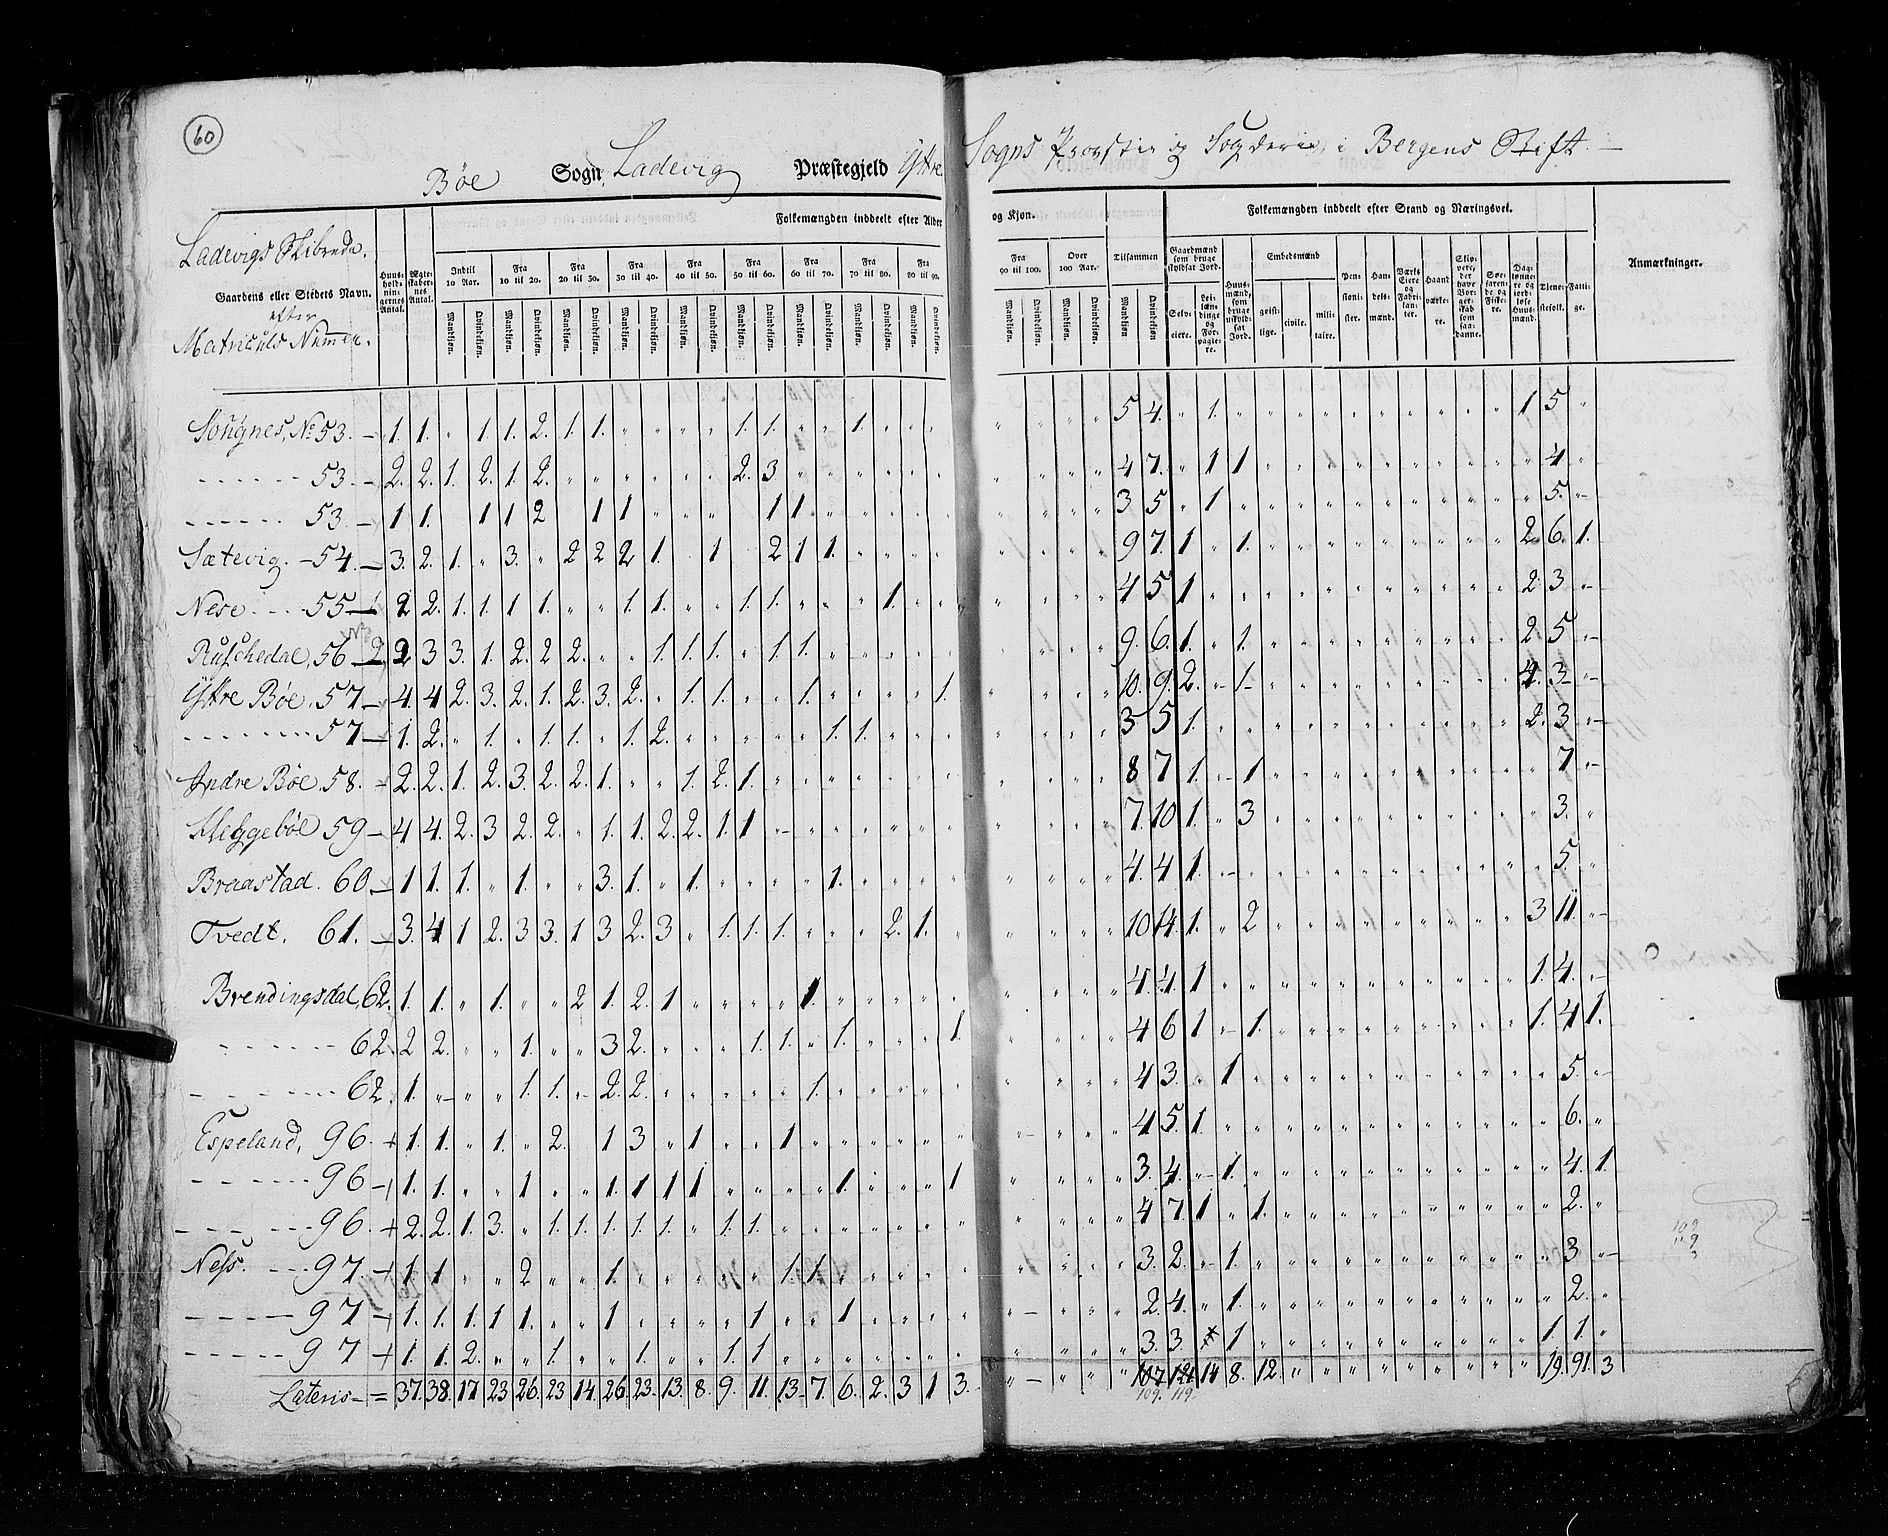 60
Böe Sogn Ladevig Præstegjeld Yttre Sogns Provstie og Fogderie i Bergens Stift.
Ladevigs Skibrede.
Gaardens eller Stedets Navn.
efter
Matriculs Nummer.
Huus-holdnin-gernes Antal.
Ægte-skaber-nes Antal.
Folkemængden inddeelt efter Alder og Kjøn.
Indtil 10 Aar. Fra 10 til 20. Fra 20 til 30. Fra 30 til 40. Fra 40 til 50. Fra 50 til 60. Fra 60 til 70. Fra 70 til 80. Fra 80 til 90. Fra 90 til 100. Over 100 Aar. Tilsammen
Mandkjøn. Qvindekjøn.
Folkemængden inddeelt efter Stand og Næringsvei.
Gaardmænd som bruge skyldsat Jord.
Selv-eiere. Lei-lændinge og For-pagte-re.
Huus-mænd, som bruge uskyld-sat Jord.
Embedsmænd
geist-lige. civile. mili-taire.
Pen-sioni-ster. Han-dels-mænd. Værks Eiere og Fabri-kan-ter. Haand værke-re. Skip-pere, der have Bor-ger-skab som saa-danne. Søe-faren-de og Fiske-re. Dag-lønne-re og jord-løse Huus-mænd. Tjene-stefolk. Fatti-ge.
Anmærkninger.
Sougnes, No 53. 1. 1. " 1 1. 2. 1 1. " " " " 1. 1. " " 1. " " " 5 4. " 1. 1 5 "
53. 2. 2. 1. 2. 1. 2. " " " " " " 2. 3 4 7. " 1 1 4
53. 1 1. 1 1 2 1 1 " " " 1 1 3 5 " 1 5.
Sætevig. 54. 3. 2. 1. " 3. " 2 2 2 1 1 2 1 1. 9 7. 1 " 1. 2 6. 1.
Nese 55 2 2. 1. 1. 1 1. " " 1 1. " " 1. 1. " " " 1. 4 5 1 2. 3
Ruschedal, 56 2 3 3. 1. 2. 2 2. " " 1. 1. 1. " 1. 1. 9. 6. 1. " 1. 2 5
Yttre Böe. 57 4. 4 2. 3. 2. 1. 2. 3. 2. " 1. 1. " " 1. 1. 10. 9. 2. 1 4. 3
57 1. 2. " 1. " 1. 1. " 1. 2. " " " " " 1. 1. 3 5 1. 2. 3
Indre Böe. 58. 2. 2. 1. 2. 3. 2. 2. 1. " " 1. 2. 1 8 7 1. 1 7
Kleggeböe 59 4 4. 2. 3 2. 2. " 1. 1. 2. 2. 1. 1 7. 10 1. " 3 3.
Braastad. 60 1 1. 1. " 1. " " 3. 1. " 1. " " " " 1. 4. 4 1. 5.
Tvedt. 61. 3. 4 1 2. 3 3. 1 3 2. 3 " 1. 1. 1. " " " 2. 1. 10 14. 1. " 2 3 11.
Brendingsdal, 62. 1. 1. " 1. " " 2 1. 2. 1 " " " " 1. 4. 4. 1 1. 4.
62. 2 2. " " 1. " " 3 2. " " " 1. 1. " 1. 1. 4 6 1 1. 1. 4 1.
62. 1. 1 1. 2. 2. 1. 4 3. " 1 5.
Espeland, 96. 1. 1. " 1. " 2. 1 3 " 1 " " 1 4 5. 1. 6.
96 1. 1. " " 1 " " 1. 1 1 1 " " " " 1. 1 3. 4. 1. 4. 1.
96. 2. 2. 1. 3. " 1. 1. 1. 1. 1. " 1. 1. 4 7. 1 " 1. 2.
Ness. 97. 1 1. " " 2 " " 1. 1. 1. 3. 2. 1. 3
97 1. 1. 1. 1 1. " " 1 " " " " 1 " " 1 2. 4. " 1. 2.
97 1. 1. 2. " " 1. " " 1. " " 1. 1 3. 3. 1 1. 1.
Lateris = 37. 38. 17 23 26. 23 14. 26. 23. 13. 8. 9. 11. 13. 7. 6. 2. 3 1 3. 107. 121 14 8. 12. 19. 91. 3
109. 119.
109
119